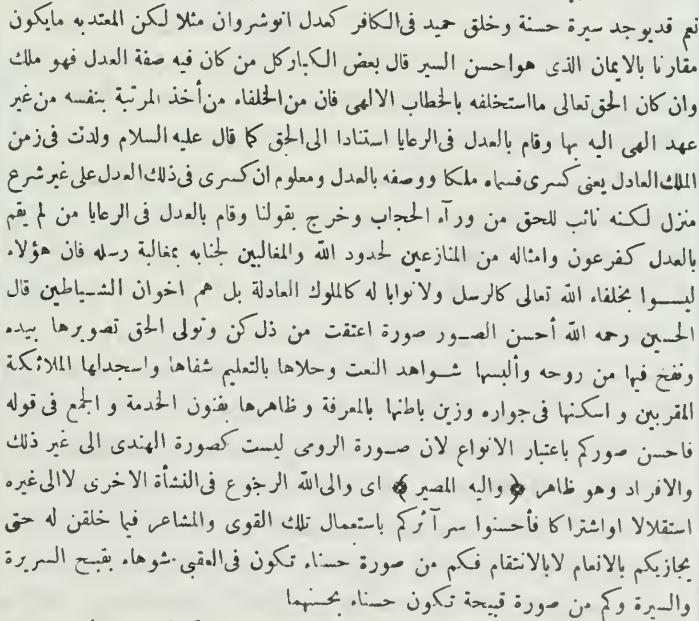 نعم قديوجد سيرة حسنة وخلق حميد فى الكافر كعدل انوشروان مثلا لكن المعتدبه مايكون
مقارنا بالايمان الذى هواحسن السير قال بعض الكبار كل من كان فيه صفة العدل فهو ملك
وان كان الحق تعالى مااستخلفه بالخطاب الالهى فان من الخلفاء من أخذ المرتبة بنفسه من غير
عهد الهى اليه بها وقام بالعدل فى الرعايا استنادا الى الحق كما قال عليه السلام ولدت فى زمن
الملك العادل يعنى كسرى فسماه ملكا ووصفه بالعدل ومعلوم ان كسرى فى ذلك العدل على غير شرع
منزل لكنه نائب للحق من ورآء الحجاب وخرج بقولنا وقام بالعدل فى الرعايا من لم يقم
بالعدل كفرعون وامثاله من المنازعين لحدود الله والمغالبين لجنابه بمغالبة رسله فان هؤلاء
ليسوا بخلفاء الله تعالى كالرسل ولانوابا له كالملوك العادلة بل هم اخوان الشياطين قال
الحسين رحمه الله أحسن الصور صورة اعتقت من ذل كن وتولى الحق تصويرها بيده
ونفخ فيها من روحه وألبسها شواهد النعت وحلاها بالتعليم شفاها واسجدلها الملائكة
المقربين و اسكنها فى جواره وزين باطنها بالمعرفة و ظاهرها بفنون الخدمة و الجمع فى قوله
فاحسن صوركم باعتبار الانواع لان صورة الرومى ليست كصورة الهندى الى غير ذلك
والافراد وهو ظاهر ﴿ واليه المصير ﴾ اى والى الله الرجوع فى النشأة الاخرى لاالى غيره
استقلالا اواشتراكا فأحسنوا سرآئركم باستعمال تلك القوى والمشاعر فيما خلقن له حتى
يجازيكم بالانعام لابالانتقام فكم من صورة حسناء تكون فى العقبى شوهاء بقبح السريرة
والسيرة وكم من صورة قبيحة تكون حسناء بحسنهما